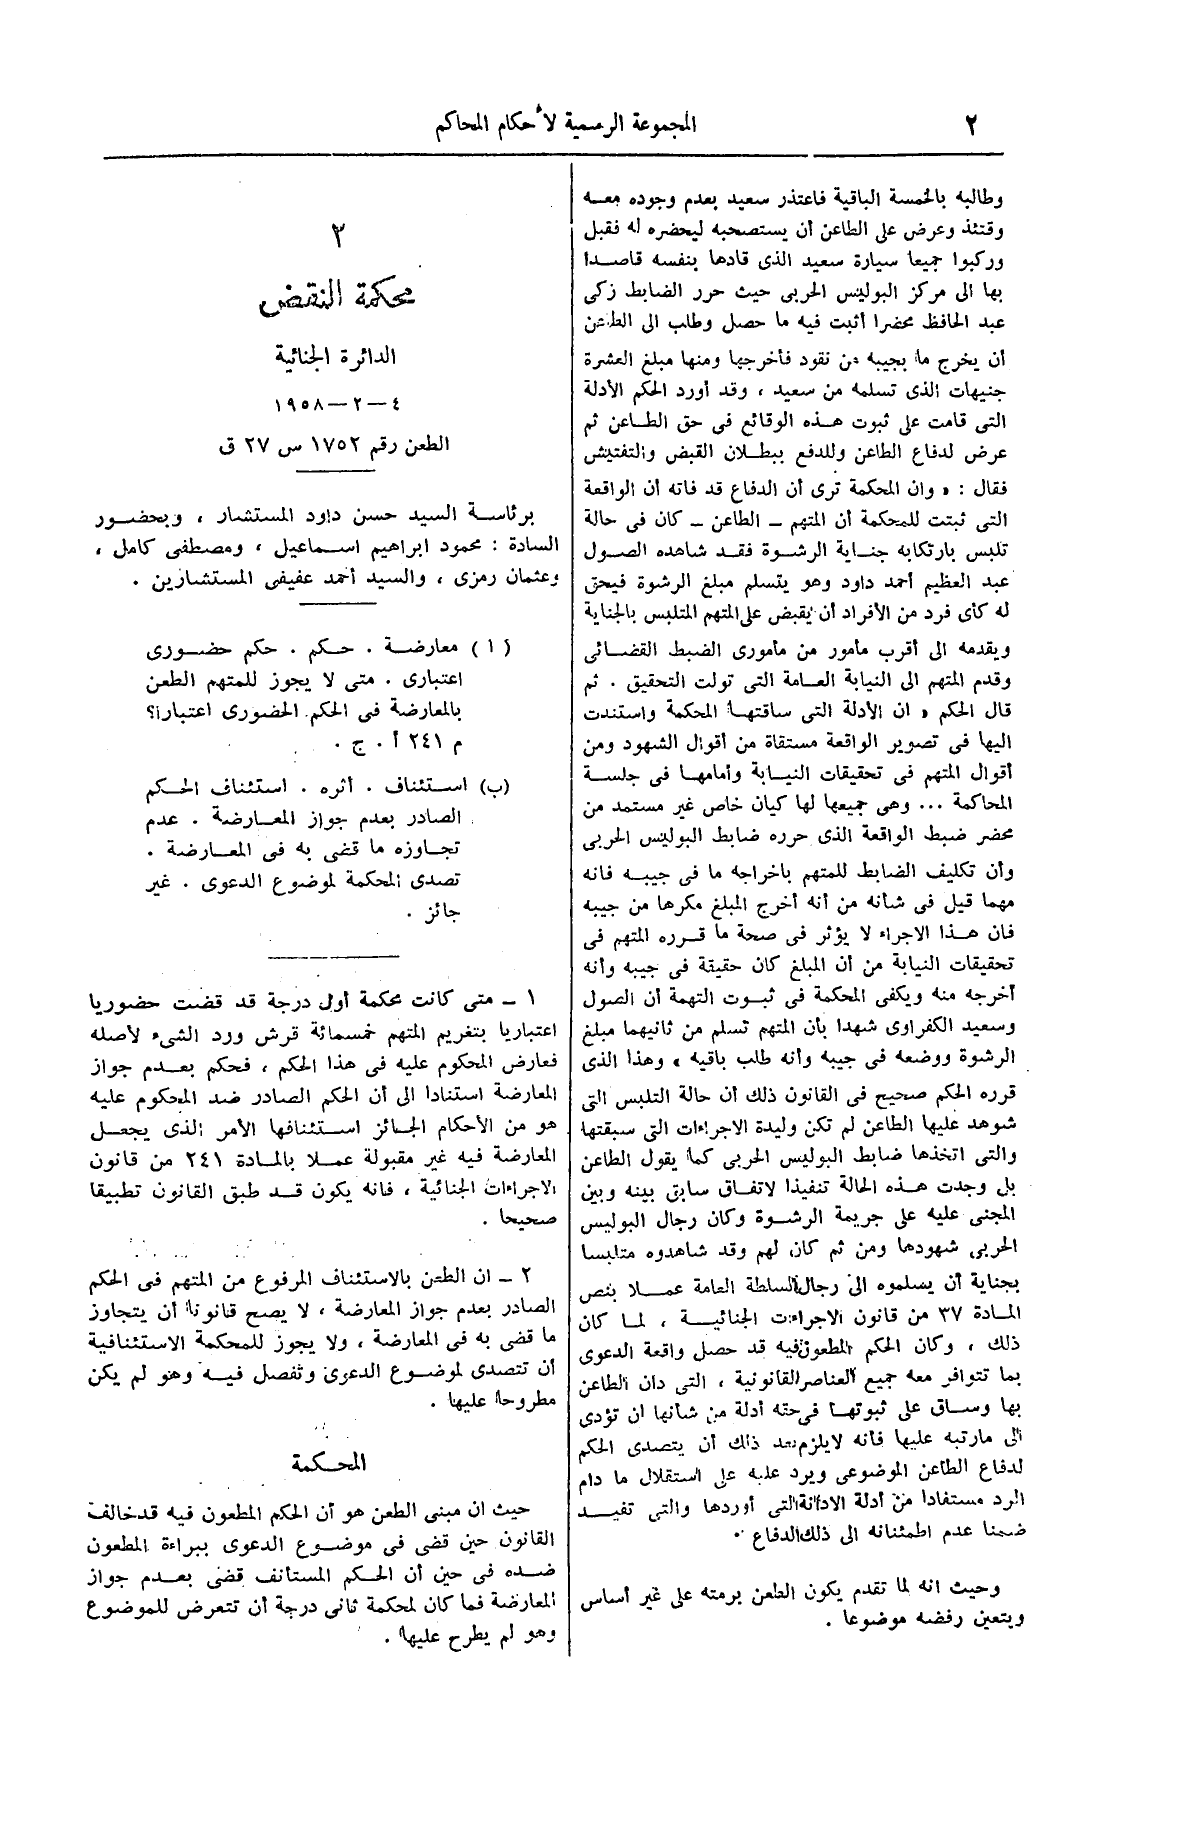 ٢
المجموعة الرسمية لأحكام المحاكم
وطالبه بالخمسة الباقية فاعتذر سعيد بعدم وجوده معه
وقتئذ وعرض على الطاعن أن يستصحبه ليحضره له فقبل
وركبوا جميعا سيارة سعيد الذى قادها بنفسه قاصدا
بها الى مركز البوليس الحربى حيث حرر الضابط زكى
عبد الحافظ محضرا أثبت فيه ما حصل وطلب الى الطاعن
أن يخرج ما بجيبه من نقود فأخرجها ومنها مبلغ العشرة
جنيهات الذى تسلمه من سعيد ، وقد أورد الحكم الأدلة
التى قامت على ثبوت هذه الوقائع فى حق الطاعن ثم
عرض لدفاع الطاعن وللدفع ببطلان القبض والتفتيش
فقال : « وان المحكمة ترى أن الدفاع قد فاته أن الواقعة
التى ثبتت للمحكمة أن المتهم – الطاعن – كان فى حالة
تلبس بارتكابه جناية الرشوة فقد شاهده الصول
عبد العظيم أحمد داود وهو يتسلم مبلغ الرشوة فيحق
له كأى فرد من الأفراد أن يقبض على المتهم المتلبس بالجناية
ويقدمه الى أقرب مأمور من مأمورى الضبط القضائى
وقدم المتهم الى النيابة العامة التى تولت التحقيق . ثم
قال الحكم « ان الأدلة التى ساقتها المحكمة واستندت
اليها فى تصوير الواقعة مستقاة من أقوال الشهود ومن
أقوال المتهم فى تحقيقات النيابة وأمامها فى جلسة
المحاكمة ... وهى جميعها لها كيان خاص غير مستمد من
محضر ضبط الواقعة الذى حرره ضابط البوليس الحربى
وأن تكليف الضابط للمتهم باخراجه ما فى جيبه فانه
مهما قيل فى شانه من أنه أخرج المبلغ مكرها من جيبه
فان هذا الاجراء لا يؤثر فى صحة ما قرره المتهم فى
تحقيقات النيابة من أن المبلغ كان حقيقة فى جيبه وأنه
أخرجه منه ويكفى المحكمة فى ثبوت التهمة أن الصول
وسعيد الكفراوى شهدا بأن المتهم تسلم من ثانيهما مبلغ
الرشوة ووضعه فى جيبه وأنه طلب باقيه » وهذا الذى
قرره الحكم صحيح فى القانون ذلك أن حالة التلبس التى
شوهد عليها الطاعن لم تكن وليدة الاجراءات التى سبقتها
والتى اتخذها ضابط البوليس الحربى كما يقول الطاعن
بل وجدت هذه الحالة تنفيذا لاتفاق سابق بينه وبين
المجنى عليه على جريمة الرشوة وكان رجال البوليس
الحربى شهودها ومن ثم كان لهم وقد شاهدوه متلبسا
بجناية أن يسلموه الى رجال السلطة العامة عملا بنص
المادة ٣٧ من قانون الاجراءات الجنائية ، لما كان
ذلك ، وكان الحكم المطعون فيه قد حصل واقعة الدعوى
بما تتوافر معه جميع العناصر القانونية ، التى دان الطاعن
بها وساق على ثبوتها فى حقه أدلة من شانها ان تؤدى
الى مارتبه عليها فانه لايلزم بعد ذلك أن يتصدى الحكم
لدفاع الطاعن الموضوعى ويرد عليه على استقلال ما دام
الرد مستفادا من أدلة الادانة التى أوردها والتى تفيد
ضمنا عدم اطمئنانه الى ذلك الدفاع .
وحيث انه لما تقدم يكون الطعن برمته على غير أساس
ويتعين رفضه موضوعا .
٢
محكمة النقض
الدائرة الجنائية
٤ – ٢ – ١٩٥٨
الطعن رقم ١٧٥٢ س ٢٧ ق
برئاسة السيد حسن داود المستشار ، وبحضور
السادة : محمود ابراهيم اسماعيل ، ومصطفى كامل ،
وعثمان رمزى ، والسيد أحمد عفيفى المستشارين .
(١) معارضة . حكم . حكم حضورى
اعتبارى . متى لا يجوز للمتهم الطعن
بالمعارضة فى الحكم الحضورى اعتبارا؟
م ٢٤١ أ . ج .
(ب) استئناف . أثره . استئناف الحكم
الصادر بعدم جواز المعارضة . عدم
تجاوزه ما قضى به فى المعارضة .
تصدى المحكمة لموضوع الدعوى . غير
جائز .
١ – متى كانت محكمة أول درجة قد قضت حضوريا
اعتباريا بتغريم المتهم خمسمائة قرش ورد الشىء لأصله
فعارض المحكوم عليه فى هذا الحكم ، فحكم بعدم جواز
المعارضة استنادا الى أن الحكم الصادر ضد المحكوم عليه
هو من الأحكام الجائز استئنافها الأمر الذى يجعل
المعارضة فيه غير مقبولة عملا بالمادة ٢٤١ من قانون
الاجراءات الجنائية ، فانه يكون قد طبق القانون تطبيقا
صحيحا .
٢ – ان الطعن بالاستئناف المرفوع من المتهم فى الحكم
الصادر بعدم جواز المعارضة ، لا يصح قانونا أن يتجاوز
ما قضى به فى المعارضة ، ولا يجوز للمحكمة الاستئنافية
أن تتصدى لموضوع الدعوى وتفصل فيه وهو لم يكن
مطروحا عليها .
المحكمة
حيث ان مبنى الطعن هو أن الحكم المطعون فيه قد خالف
القانون حين قضى فى موضوع الدعوى ببراءة المطعون
ضده فى حين أن الحكم المستانف قضى بعدم جواز
المعارضة فما كان لمحكمة ثانى درجة أن تتعرض للموضوع
وهو لم يطرح عليها .